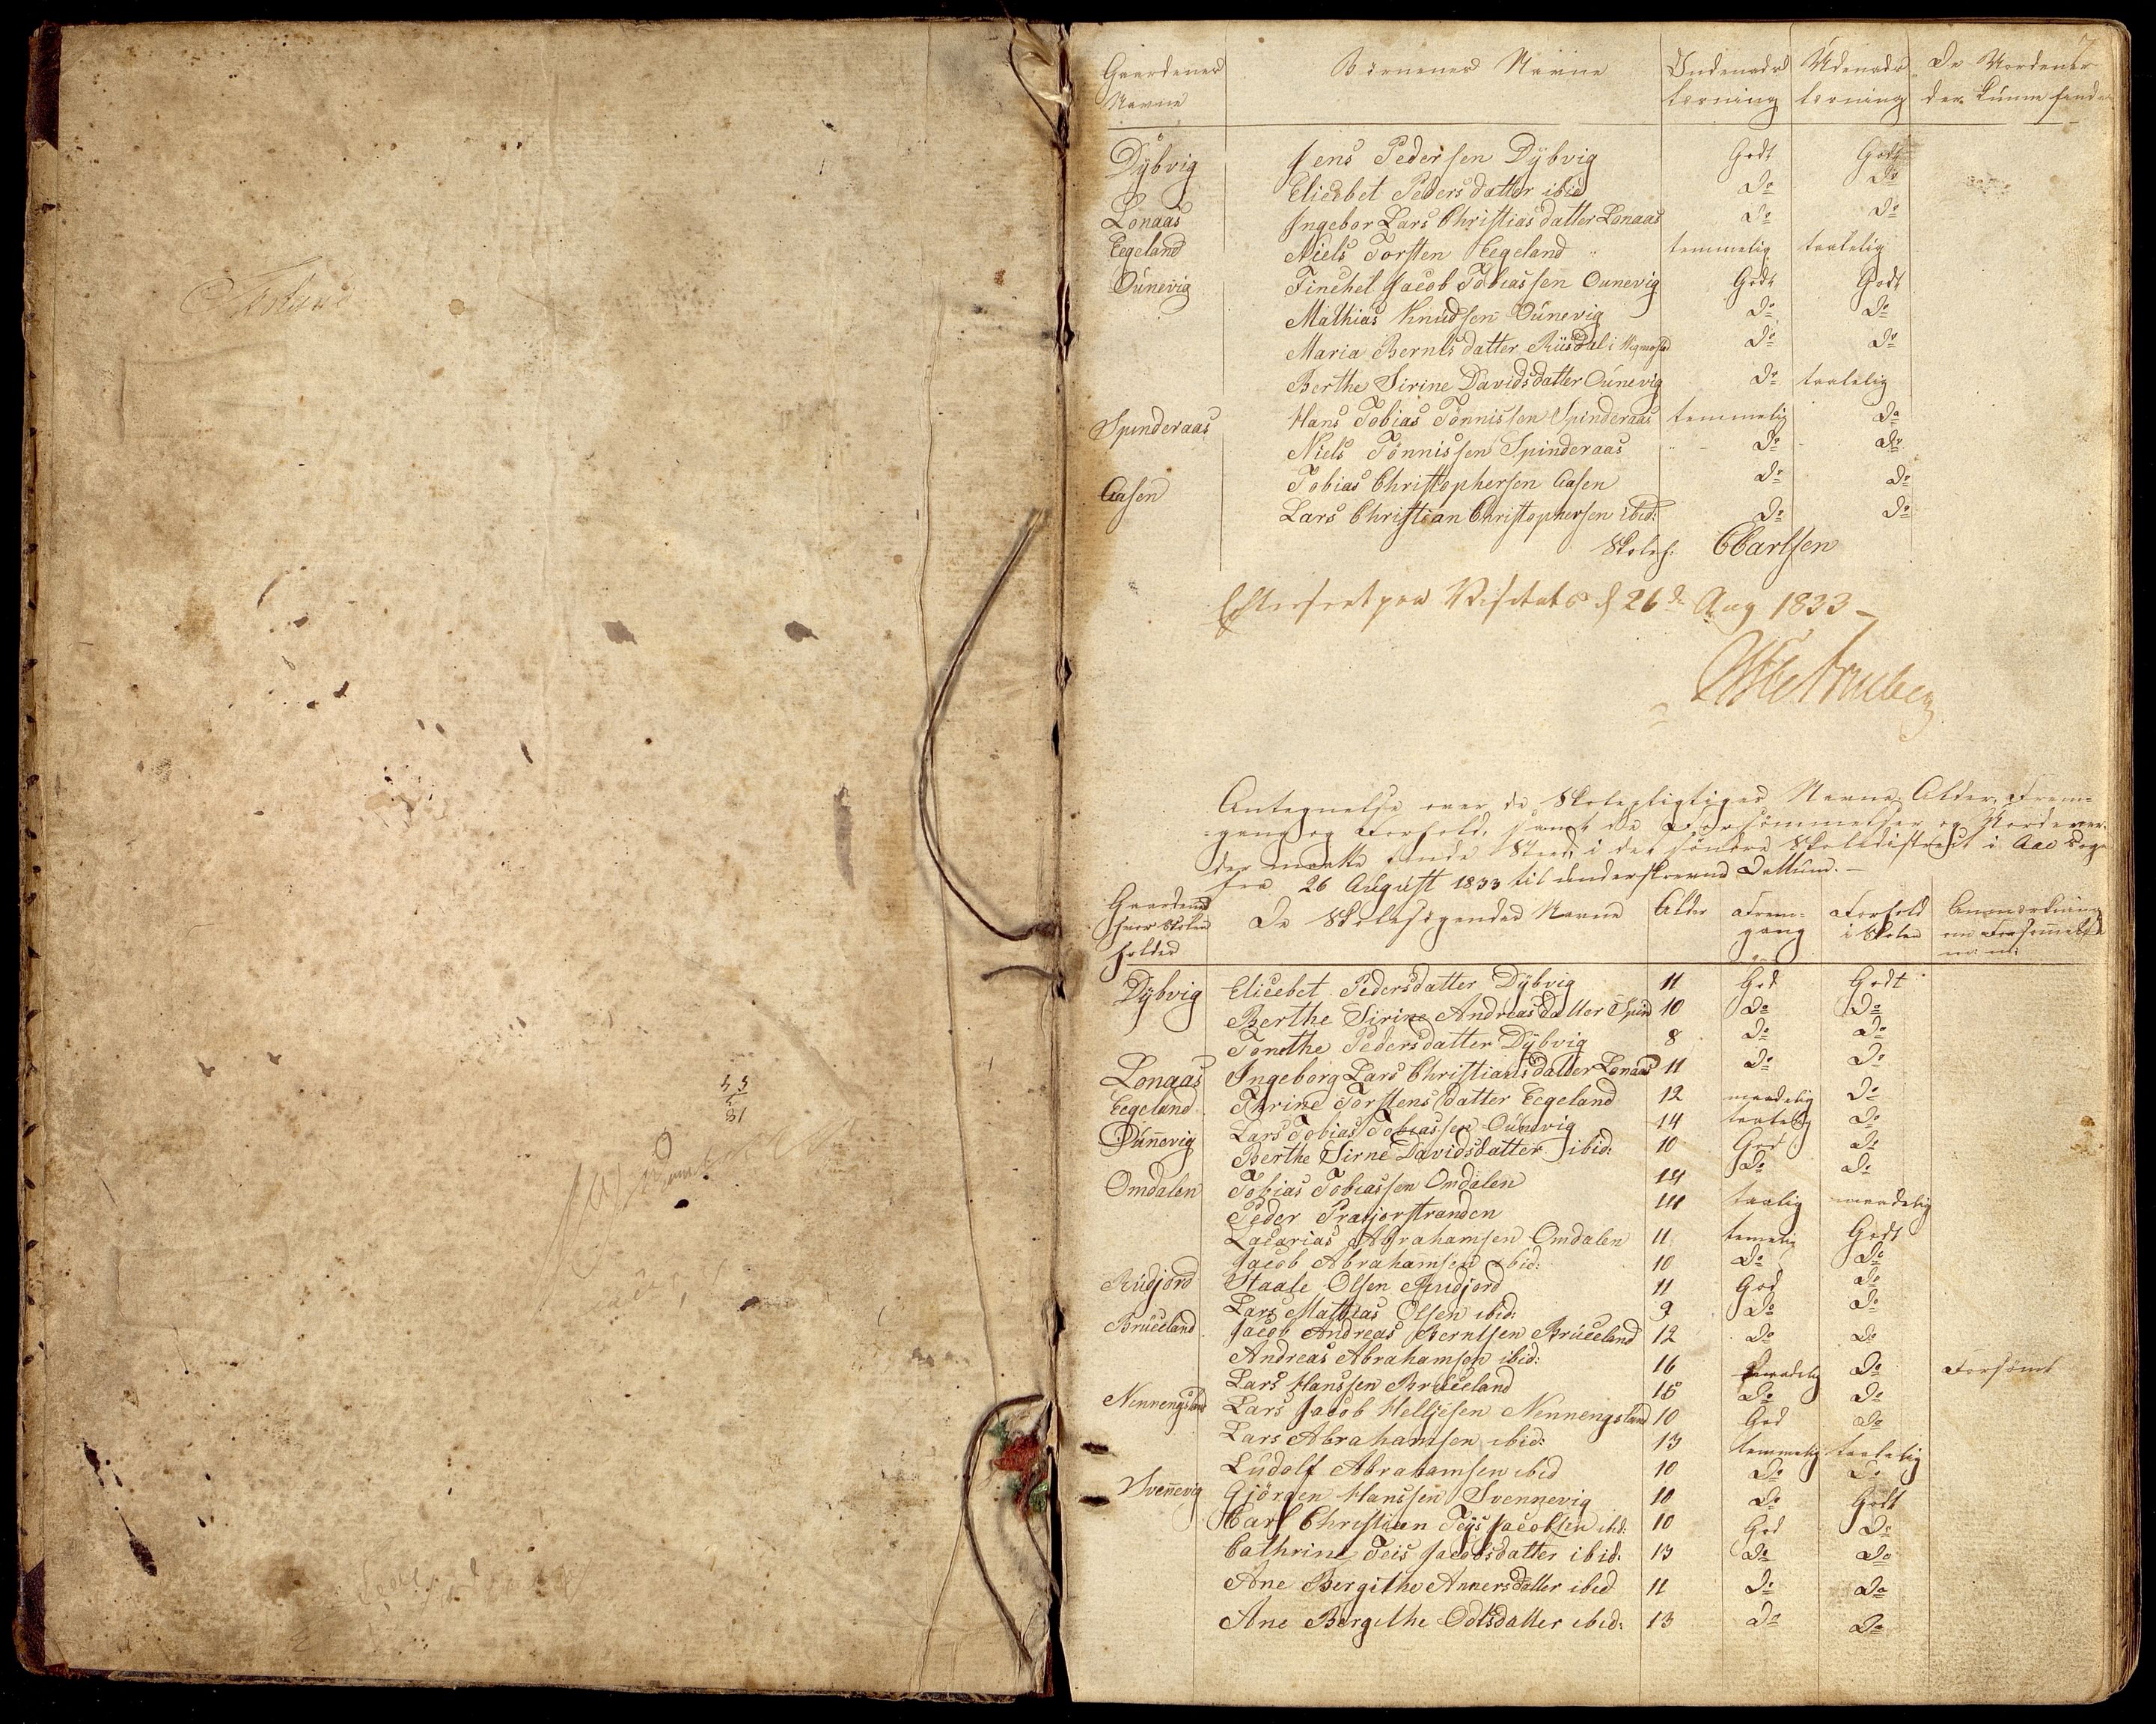 7
Gaardenes Børnenes Navne Indenads Udenads De Mordener
Navne lærning lærning der kunne finde
Dybvig Jens Pedersen Dybvig Godt Godt
Elicebet Pedersdatter ibid Do Do
Lonaas Ingebor Lars Christiasdatter Lonaas Do Do
Eegeland Niels Torsten Eegeland temmelig taalelig
Ounevig Finchel Jacob Tobiassen Ounevig Godt Godt
Mathias Knudsen Ounevig Do Do
Maria Berntsdatter Riisdal i Do Do
Berthe Sirine Davidsdatter Ounevig Do taalelig
Spinderaas Hans Tobias Tönnissen Spinderaas temmelig Do
Niels Tönnissen Spinderaas Do Do
Aasen Tobias Christophersen Aasen Do Do
Lars Christian Christophersen ibid: Do Do
Skoleh: CCarlsen
Efterseet paa Visitats d 26de Aug 1833 –
Antegnelse over de Skolepligtiges Navne, Alder, Frem-
-gang og Forhold, samt de Forsömmelser og
der maatte finde Sted, i det söndre Skoledistrect i Aae Sogn
fra 26 August 1833 til underskrevne Dattum. –
Gaardene De Skolesögendes Navne Alder Frem- Forhold Anmærkning
hvor Skolen gang i Skolen om Forsömmelse
holdes m: m:
Dybvig Elicebet Pedersdatter Dybvig 11 God Godt
Berthe Sirine Andreasdatter Spind 10 Do Do
Tonethe Pedersdatter Dybvig 8 Do Do
Lonaas Ingeborg Lars Christiansdatter Lonaas 11 Do Do
Eegeland Thrine Torstensdatter Eegeland 12 maadelig Do
Ounevig Lars Tobias Tobiassen Ounevig 14 taalelig Do
Berthe Sirne Davidsdatter ibid: 10 God Do
Omdalen Tobias Tobiassen Omdalen 14 Do Do
Peder Prætjorstranden 14 taalig maadelig
Zacarias Abrahamsen Omdalen 11 temelig Godt
Jacob Abrahamsen ibid: 10 Do Do
Rudjord Staale Olsen Rudjord 11 God Do
Lars Mathias Olsen ibid: 9 Do Do
Brüceland Jacob Andreas Berntsen Brüceland 12 Do Do
Andreas Abrahamsen ibid: 16 maadelig Do Forsömt
Lars Hanssen Brüceland 15 Do Do
Nennengsland Lars Jacob Helljesen Nennengsland 10 God Do
Lars Abrahamsen ibid: 13 temmelig taalelig
Ludolf Abrahamsen ibid 10 Do Do
Svennevig Gjörgen Hanssen Svennevig 10 Do Godt
Carl Christian Teis Jacobsen ibid: 10 God Do
Cathrine Teis Jacobsdatter ibid: 13 Do Do
Ane Bergithe Annersdatter ibid 11 Do Do
Ane Bergithe Odtsdatter ibid: 13 Do Do